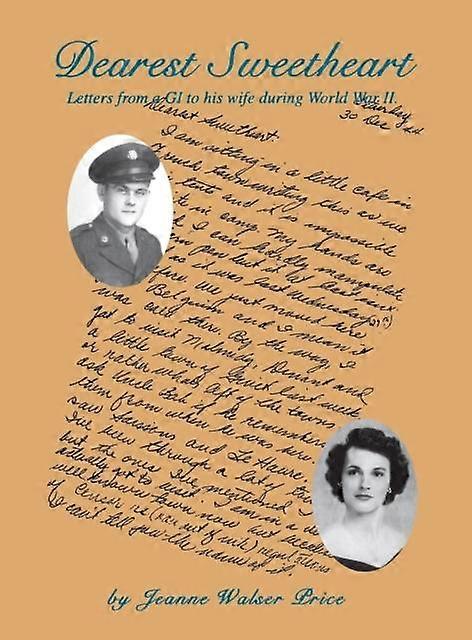 Dearest Sweetheart
Letters from a GI to his wife during World War II.
Saturday
30 Dec
Dearest Sweetheart:
I am sitting in a little cafe in
French town writing this as we
tents and it is impossible
in camp. My hands are
I can hardly manipulate
pen but it
as it was last Wednesday
before we just moved here
Belgium and I mean it
was cold there. By the way, I
got to visit Malmedy, Dinant and
a little town of last week
or rather what's left of the towns
ask Uncle Bob if he remembers
them from when he was here
saw Soissons and Le Havre.
I've been through a lot of
but the ones I've mentioned I
actually got to visit. I'm in a
well known town now but
of censor
I can't tell you the name of it.
by Jeanne Walser Price